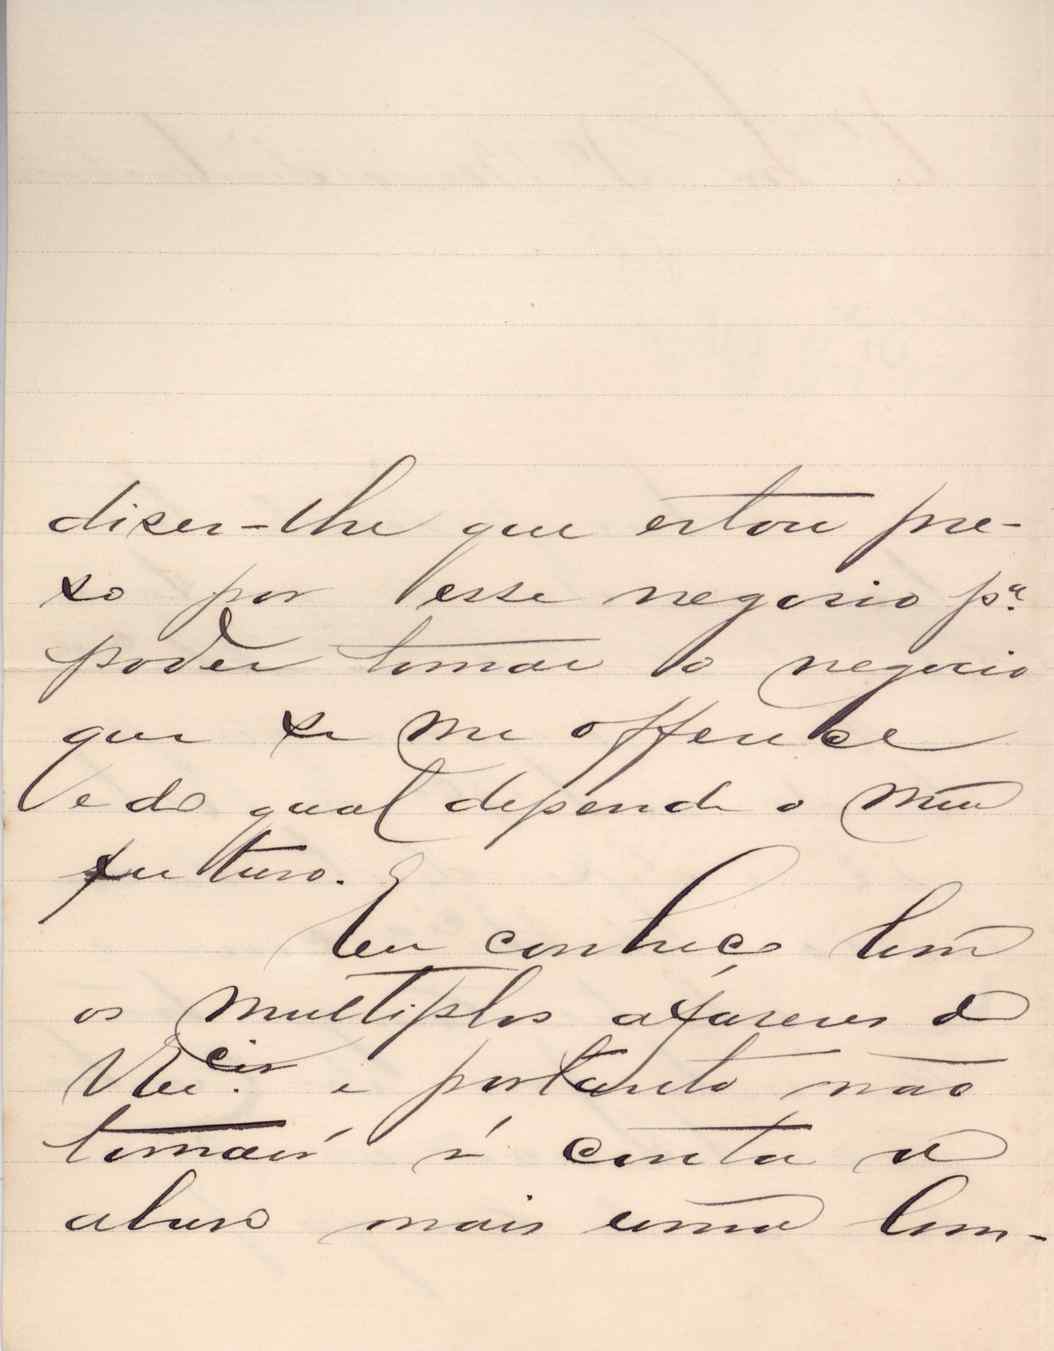 diser-lhe que estou pre-
so por esse negocio pª
poder tomar o negocio
que se me offerece
e do qual depende o meu
futuro.
Eu conheço bem
os multiplos afazeres de
VExcia. e portanto não
tomará á conta de
abuso mais uma lem-